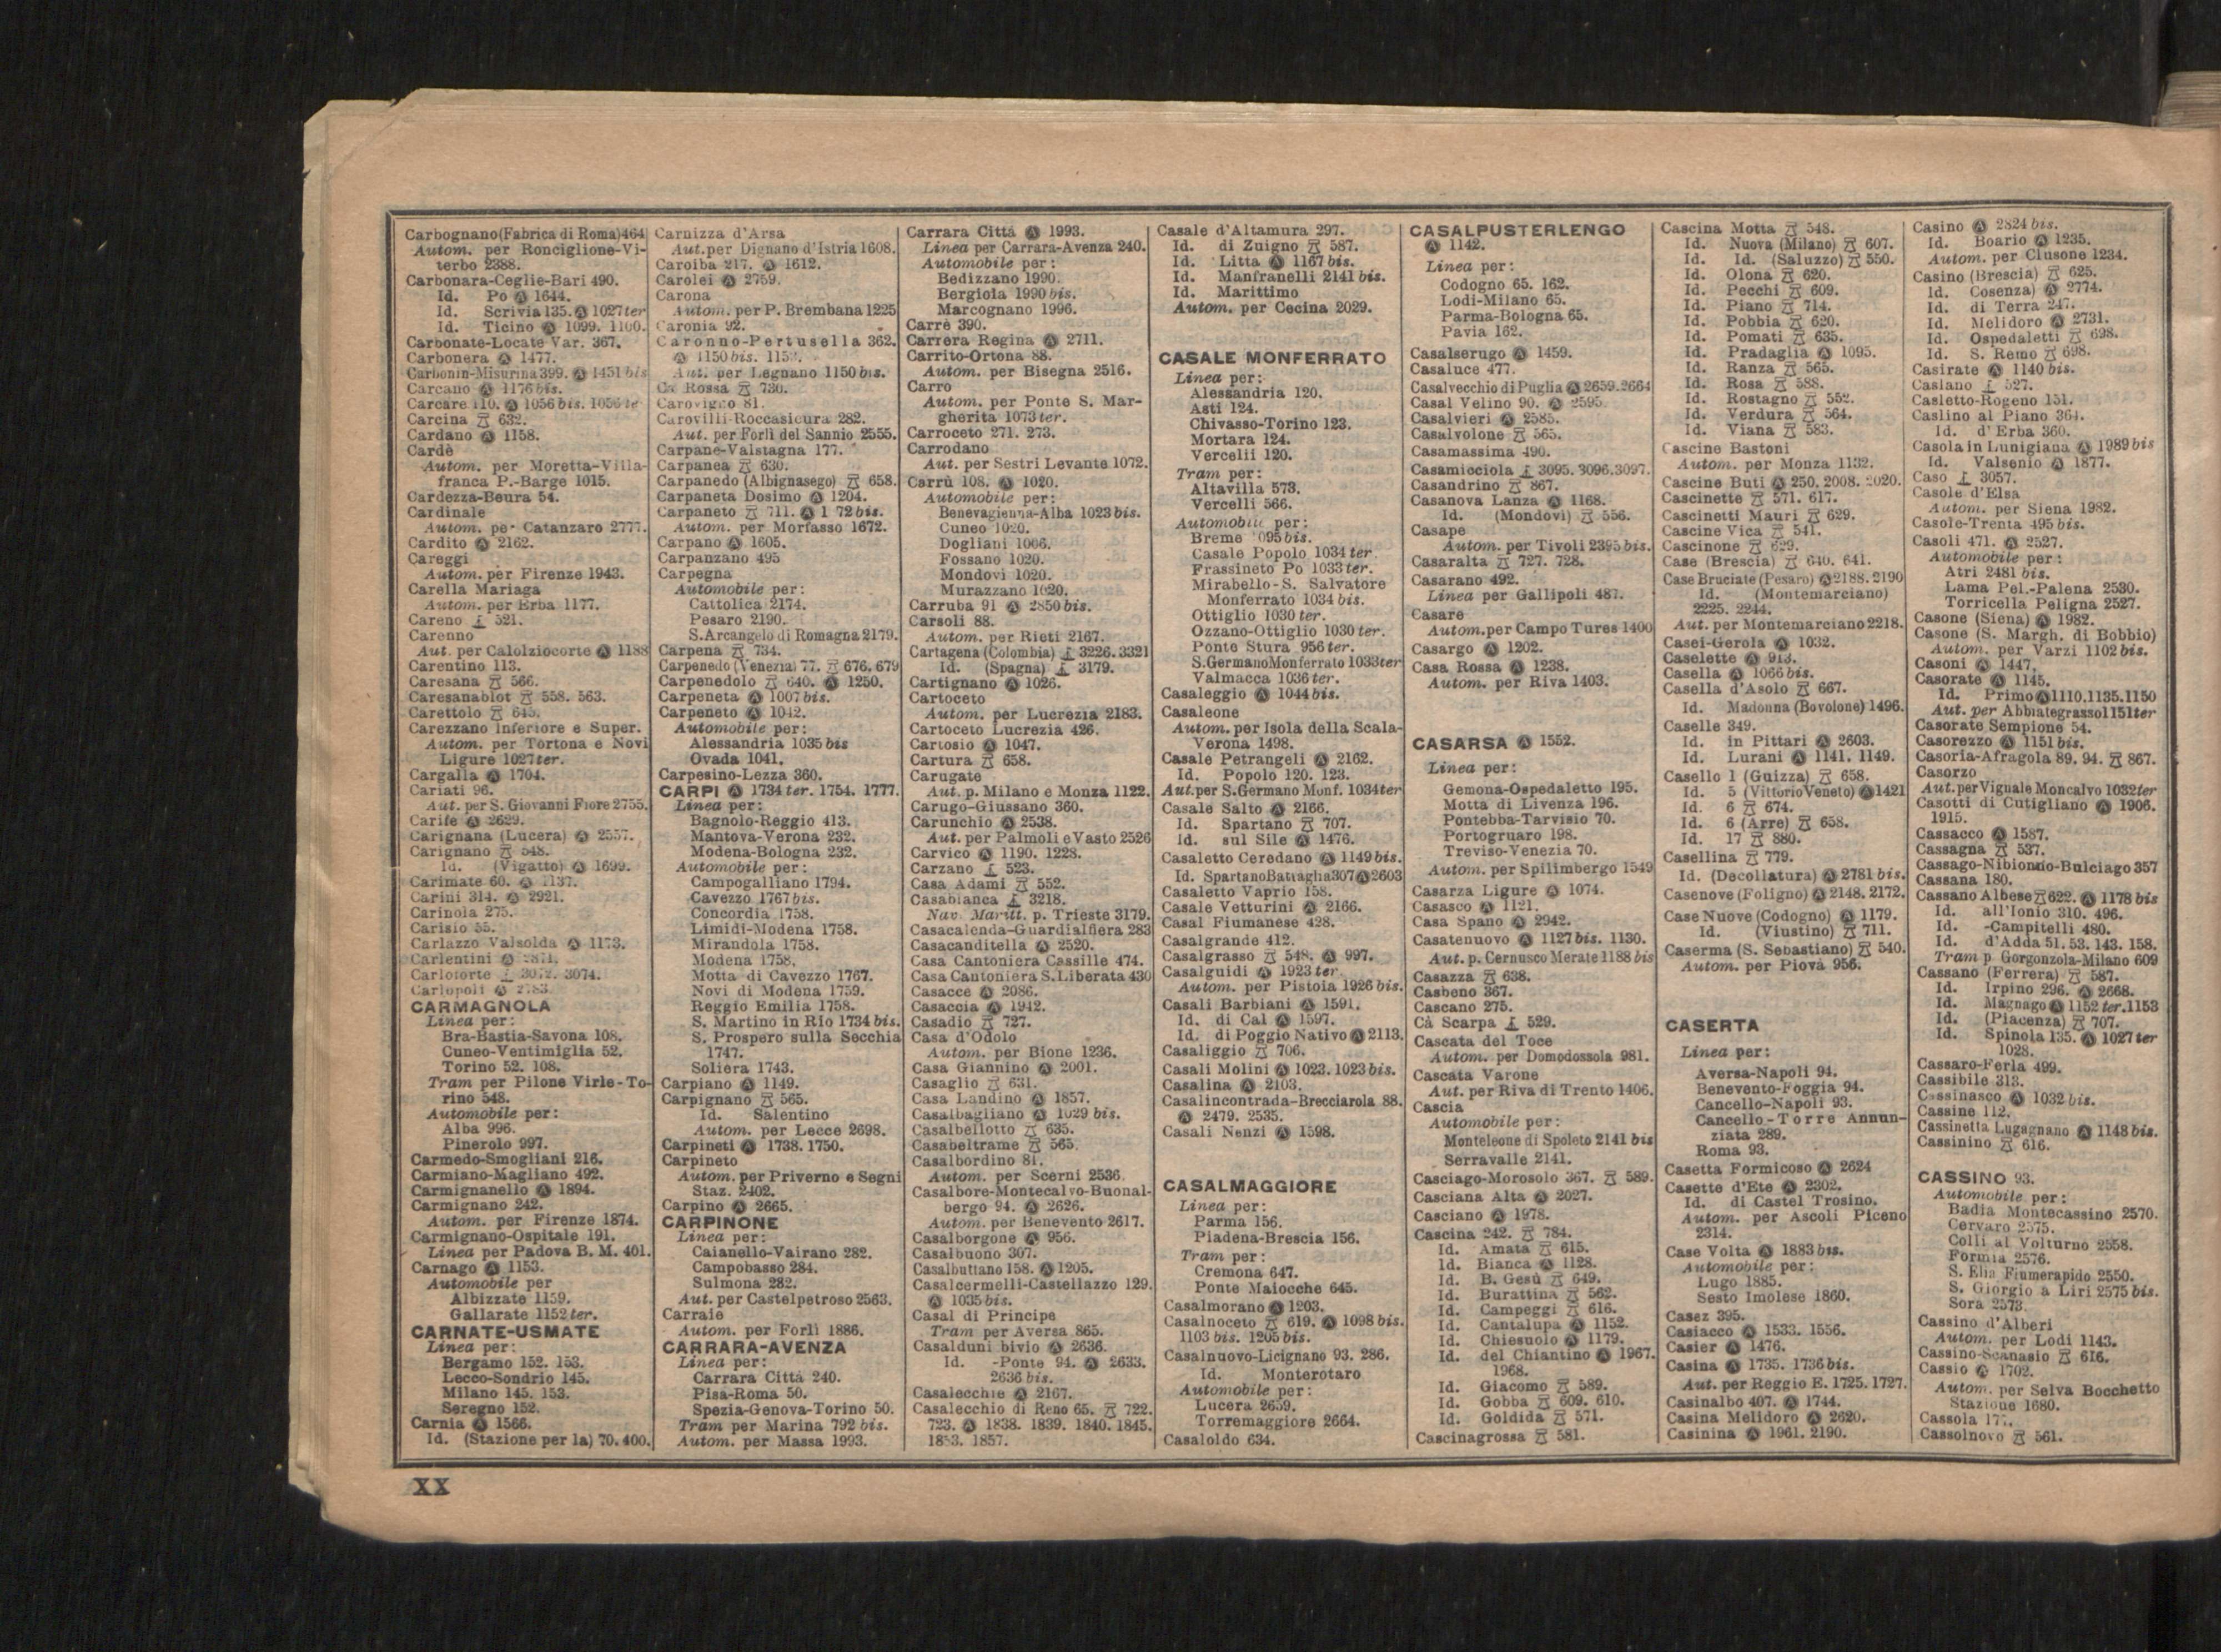 Carbognano(Fabrica di Roma)464
Autom. per Ronciglione-Vi-
terbo 2388.
Carbonara-Ceglie-Bari 490.
Id. Po Ⓐ 1644.
Id. Scrivia 135. Ⓐ 1027 ter
Id. Ticino Ⓐ 1099. 1100.
Carbonate-Locate Var. 367.
Carbonera Ⓐ 1477.
Carbonin-Misurina 399. Ⓐ 1451 bis
Carcano Ⓐ 1176 bis.
Carcare 110. Ⓐ 1056 bis. 1056 te
Carcina 632.
Cardano Ⓐ 1158.
Cardè
Autom. per Moretta-Villa-
franca P.-Barge 1015.
Cardezza-Beura 54.
Cardinale
Autom. per Catanzaro 2777.
Cardito Ⓐ 2162.
Careggi
Autom. per Firenze 1943.
Carella Mariaga
Autom. per Erba 1177.
Careno 521.
Carenno
Aut. per Calolziocorte Ⓐ 1188
Carentino 113.
Caresana 566.
Caresanablot 558. 563.
Carettolo 645.
Carezzano Inferiore e Super.
Autom. per Tortona e Novi
Ligure 1027 ter.
Cargalla Ⓐ 1704.
Cariati 96.
Aut. per S. Giovanni Fiore 2755.
Carife Ⓐ 2629.
Carignana (Lucera) Ⓐ 2557.
Carignano 548.
Id. (Vigatto) Ⓐ 1699.
Carimate 60. Ⓐ 1137.
Carini 314. Ⓐ 2921.
Carinola 275.
Carisio 55.
Carlazzo Valsolda Ⓐ 1173.
Carlentini Ⓐ
Carloforte 3074.
Carlopoli Ⓐ
CARMAGNOLA
Linea per:
Bra-Bastia-Savona 108.
Cuneo-Ventimiglia 52.
Torino 52. 108.
Tram per Pilone Virle-To-
rino 548.
Automobile per:
Alba 996.
Pinerolo 997.
Carmedo-Smogliani 216.
Carmiano-Magliano 492.
Carmignanello Ⓐ 1894.
Carmignano 242.
Autom. per Firenze 1874.
Carmignano-Ospitale 191.
Linea per Padova B. M. 401.
Carnago Ⓐ 1153.
Automobile per
Albizzate 1159.
Gallarate 1152 ter.
CARNATE-USMATE
Linea per:
Bergamo 152. 153.
Lecco-Sondrio 145.
Milano 145. 153.
Seregno 152.
Carnia Ⓐ 1566.
Id. (Stazione per la) 70. 400.
Carnizza d'Arsa
Aut. per Dignano d'Istria 1608.
Caroiba 217. Ⓐ 1612.
Carolei Ⓐ 2759.
Carona
Autom. per P. Brembana 1225
Caronia 92.
Caronno-Pertusella 362.
Ⓐ 1150 bis. 1152.
Aut. per Legnano 1150 bis.
Ca Rossa 730.
Carovigno 81.
Carovilli-Roccasicura 282.
Aut. per Forlì del Sannio 2555.
Carpanè-Valstagna 177.
Carpanea 630.
Carpanedo (Albignasego) 658.
Carpaneta Dosimo Ⓐ 1204.
Carpaneto 711. Ⓐ 1 72 bis.
Autom. per Morfasso 1672.
Carpano Ⓐ 1605.
Carpanzano 495
Carpegna
Automobile per:
Cattolica 2174.
Pesaro 2190.
S. Arcangelo di Romagna 2179.
Carpena 734.
Carpenedo (Venezia) 77. 676. 679
Carpenedolo 640. Ⓐ 1250.
Carpeneta Ⓐ 1007 bis.
Carpeneto Ⓐ 1042.
Automobile per:
Alessandria 1035 bis
Ovada 1041.
Carpesino-Lezza 360.
CARPI Ⓐ 1734 ter. 1754. 1777.
Linea per:
Bagnolo-Reggio 413.
Mantova-Verona 232.
Modena-Bologna 232.
Automobile per:
Campogalliano 1794.
Cavezzo 1767 bis.
Concordia 1758.
Limidi-Modena 1758.
Mirandola 1758.
Modena 1758.
Motta di Cavezzo 1767.
Novi di Modena 1759.
Reggio Emilia 1758.
S. Martino in Rio 1734 bis.
S. Prospero sulla Secchia
1747.
Soliera 1743.
Carpiano Ⓐ 1149.
Carpignano 565.
Id. Salentino
Autom. per Lecce 2698.
Carpineti Ⓐ 1738. 1750.
Carpineto
Autom. per Priverno e Segni
Staz. 2402.
Carpino Ⓐ 2665.
CARPINONE
Linea per:
Caianello-Vairano 282.
Campobasso 284.
Sulmona 282.
Aut. per Castelpetroso 2563.
Carraie
Autom. per Forlì 1886.
CARRARA-AVENZA
Linea per:
Carrara Città 240.
Pisa-Roma 50.
Spezia-Genova-Torino 50.
Tram per Marina 792 bis.
Autom. per Massa 1993.
Carrara Città Ⓐ 1993.
Linea per Carrara-Avenza 240.
Automobile per:
Bedizzano 1990.
Bergiola 1990 bis.
Marcognano 1996.
Carrè 390.
Carrera Regina Ⓐ 2711.
Carrito-Ortona 88.
Autom. per Bisegna 2516.
Carro
Autom. per Ponte S. Mar-
gherita 1073 ter.
Carroceto 271. 273.
Carrodano
Aut. per Sestri Levante 1072.
Carrù 108. Ⓐ 1020.
Automobile per:
Benevagienna-Alba 1023 bis.
Cuneo 1020.
Dogliani 1006.
Fossano 1020.
Mondovì 1020.
Murazzano 1020.
Carruba 91 Ⓐ 2850 bis.
Carsoli 88.
Autom. per Rieti 2167.
Cartagena (Colombia) 3226. 3321
Id. (Spagna) 3179.
Cartignano Ⓐ 1026.
Cartoceto
Autom. per Lucrezia 2183.
Cartoceto Lucrezia 426.
Cartosio Ⓐ 1047.
Cartura 658.
Carugate
Aut. p. Milano e Monza 1122.
Carugo-Giussano 360.
Carunchio Ⓐ 2538.
Aut. per Palmoli e Vasto 2526
Carvico Ⓐ 1190. 1228.
Carzano 523.
Casa Adami 552.
Casabianca 3218.
Nav. Maritt. p. Trieste 3179.
Casacalenda-Guardialfiera 283
Casacanditella Ⓐ 2520.
Casa Cantoniera Cassille 474.
Casa Cantoniera S. Liberata 430
Casacce Ⓐ 2086.
Casaccia Ⓐ 1942.
Casadio 727.
Casa d'Odolo
Autom. per Bione 1236.
Casa Giannino Ⓐ 2001.
Casaglio 631.
Casa Landino Ⓐ 1857.
Casalbagliano Ⓐ 1029 bis.
Casalbellotto 635.
Casabeltrame 565.
Casalbordino 81.
Autom. per Scerni 2536.
Casalbore-Montecalvo-Buonal-
bergo 94. Ⓐ 2626.
Autom. per Benevento 2617.
Casalborgone Ⓐ 956.
Casalbuono 307.
Casalbuttano 158. Ⓐ 1205.
Casalcermelli-Castellazzo 129.
Ⓐ 1035 bis.
Casal di Principe
Tram per Aversa 865.
Casalduni bivio Ⓐ 2636.
Id. -Ponte 94. Ⓐ 2633.
2636 bis.
Casalecchie Ⓐ 2167.
Casalecchio di Reno 65. 722.
723. Ⓐ 1838. 1839. 1840. 1845.
1853. 1857.
Casale d'Altamura 297.
Id. di Zuigno 587.
Id. Litta Ⓐ 1167 bis.
Id. Manfranelli 2141 bis.
Id. Marittimo
Autom. per Cecina 2029.
CASALE MONFERRATO
Linea per:
Alessandria 120.
Asti 124.
Chivasso-Torino 123.
Mortara 124.
Vercelli 120.
Tram per:
Altavilla 573.
Vercelli 566.
Automobile per:
Breme 1095 bis.
Casale Popolo 1034 ter.
Frassineto Po 1033 ter.
Mirabello-S. Salvatore
Monferrato 1034 bis.
Ottiglio 1030 ter.
Ozzano-Ottiglio 1030 ter.
Ponte Stura 956 ter.
S. Germano Monferrato 1033 ter
Valmacca 1036 ter.
Casaleggio Ⓐ 1044 bis.
Casaleone
Autom. per Isola della Scala-
Verona 1498.
Casale Petrangeli Ⓐ 2162.
Id. Popolo 120. 123.
Aut. per S. Germano Monf. 1034 ter
Casale Salto Ⓐ 2166.
Id. Spartano 707.
Id. sul Sile Ⓐ 1476.
Casaletto Ceredano Ⓐ 1149 bis.
Id. Spartano Battaglia 307 Ⓐ 2603
Casaletto Vaprio 158.
Casale Vetturini Ⓐ 2166.
Casal Fiumanese 428.
Casalgrande 412.
Casalgrasso 548. Ⓐ 997.
Casalguidi Ⓐ 1923 ter.
Autom. per Pistoia 1926 bis.
Casali Barbiani Ⓐ 1591.
Id. di Cal Ⓐ 1597.
Id. di Poggio Nativo Ⓐ 2113.
Casaliggio 706.
Casali Molini Ⓐ 1023. 1023 bis.
Casalina Ⓐ 2103.
Casalincontrada-Brecciarola 88.
Ⓐ 2479. 2535.
Casali Nenzi Ⓐ 1598.
CASALMAGGIORE
Linea per:
Parma 156.
Piadena-Brescia 156.
Tram per:
Cremona 647.
Ponte Maiocche 645.
Casalmorano Ⓐ 1203.
Casalnoceto 619. Ⓐ 1098 bis.
1103 bis. 1205 bis.
Casalnuovo-Licignano 93. 286.
Id. Monterotaro
Automobile per:
Lucera 2659.
Torremaggiore 2664.
Casaloldo 634.
CASALPUSTERLENGO
Ⓐ 1142.
Linea per:
Codogno 65. 162.
Lodi-Milano 65.
Parma-Bologna 65.
Pavia 162.
Casalserugo Ⓐ 1459.
Casaluce 477.
Casalvecchio di Puglia Ⓐ 2659. 2664
Casal Velino 90. Ⓐ 2595.
Casalvieri Ⓐ 2585.
Casalvolone 565.
Casamassima 490.
Casamicciola 3095. 3096. 3097.
Casandrino 867.
Casanova Lanza Ⓐ 1168.
Id. (Mondovì) 556.
Casape
Autom. per Tivoli 2395 bis.
Casaralta 727. 728.
Casarano 492.
Linea per Gallipoli 487.
Casare
Autom. per Campo Tures 1400
Casargo Ⓐ 1202.
Casa Rossa Ⓐ 1238.
Autom. per Riva 1403.
CASARSA Ⓐ 1552.
Linea per:
Gemona-Ospedaletto 195.
Motta di Livenza 196.
Pontebba-Tarvisio 70.
Portogruaro 198.
Treviso-Venezia 70.
Autom. per Spilimbergo 1549
Casarza Ligure Ⓐ 1074.
Casasco Ⓐ 1121.
Casa Spano Ⓐ 2942.
Casatenuovo Ⓐ 1127 bis. 1130.
Aut. p. Cernusco Merate 1188 bis
Casazza 638.
Casbeno 367.
Cascano 275.
Cà Scarpa 529.
Cascata del Toce
Autom. per Domodossola 981.
Cascata Varone
Aut. per Riva di Trento 1406.
Cascia
Automobile per:
Monteleone di Spoleto 2141 bis
Serravalle 2141.
Casciago-Morosolo 367. 589.
Casciana Alta Ⓐ 2027.
Casciano Ⓐ 1978.
Cascina 242. 784.
Id. Amata 615.
Id. Bianca Ⓐ 1128.
Id. B. Gesù 649.
Id. Burattina 562.
Id. Campeggi 616.
Id. Cantalupa Ⓐ 1152.
Id. Chiesuolo Ⓐ 1179.
Id. del Chiantino Ⓐ 1967.
1968.
Id. Giacomo 589.
Id. Gobba 609. 610.
Id. Goldida 571.
Cascinagrossa 581.
Cascina Motta 548.
Id. Nuova (Milano) 607.
Id. Id. (Saluzzo) 550.
Id. Olona 620.
Id. Pecchi 609.
Id. Piano 714.
Id. Pobbia 620.
Id. Pomati 635.
Id. Pradaglia Ⓐ 1095.
Id. Ranza 565.
Id. Rosa 588.
Id. Rostagno 552.
Id. Verdura 564.
Id. Viana 583.
Cascine Bastoni
Autom. per Monza 1132.
Cascine Buti Ⓐ 250. 2008. 2020.
Cascinette 571. 617.
Cascinetti Mauri 629.
Cascine Vica 541.
Cascinone 629.
Case (Brescia) 640. 641.
Case Bruciate (Pesaro) Ⓐ 2188. 2190
Id. (Montemarciano)
2225. 2244.
Aut. per Montemarciano 2218.
Casei-Gerola Ⓐ 1032.
Caselette Ⓐ 913.
Casella Ⓐ 1066 bis.
Casella d'Asolo 667.
Id. Madonna (Bovolone) 1496.
Caselle 349.
Id. in Pittari Ⓐ 2603.
Id. Lurani Ⓐ 1141. 1149.
Casello 1 (Guizza) 658.
Id. 5 (Vittorio Veneto) Ⓐ 1421
Id. 6 674.
Id. 6 (Arre) 658.
Id. 17 880.
Casellina 779.
Id. (Decollatura) Ⓐ 2781 bis.
Casenove (Foligno) Ⓐ 2148. 2172.
Case Nuove (Codogno) Ⓐ 1179.
Id. (Viustino) 711.
Caserma (S. Sebastiano) 540.
Autom. per Piovà 956.
CASERTA
Linea per:
Aversa-Napoli 94.
Benevento-Foggia 94.
Cancello-Napoli 93.
Cancello-Torre Annun-
ziata 289.
Roma 93.
Casetta Formicoso Ⓐ 2624
Casette d'Ete Ⓐ 2302.
Id. di Castel Trosino.
Autom. per Ascoli Piceno
2314.
Case Volta Ⓐ 1883 bis.
Automobile per:
Lugo 1885.
Sesto Imolese 1860.
Casez 395.
Casiacco Ⓐ 1533. 1556.
Casier Ⓐ 1476.
Casina Ⓐ 1735. 1736 bis.
Aut. per Reggio E. 1725. 1727.
Casinalbo 407. Ⓐ 1744.
Casina Melidoro Ⓐ 2620.
Casinina Ⓐ 1961. 2190.
Casino Ⓐ 2824 bis.
Id. Boario Ⓐ 1235.
Autom. per Clusone 1234.
Casino (Brescia) 625.
Id. Cosenza) Ⓐ 2774.
Id. di Terra 247.
Id. Melidoro Ⓐ 2731.
Id. Ospedaletti 698.
Id. S. Remo 698.
Casirate Ⓐ 1140 bis.
Caslano 527.
Casletto-Rogeno 151.
Caslino al Piano 364.
Id. d'Erba 360.
Casola in Lunigiana Ⓐ 1989 bis
Id. Valsenio Ⓐ 1877.
Caso 3057.
Casole d'Elsa
Autom. per Siena 1982.
Casole-Trenta 495 bis.
Casoli 471. Ⓐ 2527.
Automobile per:
Atri 2481 bis.
Lama Pel.-Palena 2530.
Torricella Peligna 2527.
Casone (Siena) Ⓐ 1982.
Casone (S. Margh. di Bobbio)
Autom. per Varzi 1102 bis.
Casoni Ⓐ 1447.
Casorate Ⓐ 1145.
Id. Primo Ⓐ 1110. 1135. 1150
Aut. per Abbiategrasso 1151 ter
Casorate Sempione 54.
Casorezzo Ⓐ 1151 bis.
Casoria-Afragola 89. 94. 867.
Casorzo
Aut. per Vignale Moncalvo 1032 ter
Casotti di Cutigliano Ⓐ 1906.
1915.
Cassacco Ⓐ 1587.
Cassagna 537.
Cassago-Nibionno-Bulciago 357
Cassana 180.
Cassano Albese 622. Ⓐ 1178 bis
Id. all'Ionio 310. 496.
Id. -Campitelli 480.
Id. d'Adda 51. 53. 143. 158.
Tram p. Gorgonzola-Milano 609
Cassano (Ferrera) 587.
Id. Irpino 296. Ⓐ 2668.
Id. Magnago Ⓐ 1152 ter. 1153
Id. (Piacenza) 707.
Id. Spinola 135. Ⓐ 1027 ter
1028.
Cassaro-Ferla 499.
Cassibile 313.
Cassinasco Ⓐ 1032 bis.
Cassine 112.
Cassinetta Lugagnano Ⓐ 1148 bis.
Cassinino 616.
CASSINO 93.
Automobile per:
Badia Montecassino 2570.
Cervaro 2575.
Colli al Volturno 2558.
Formia 2576.
S. Elia Fiumerapido 2550.
S. Giorgio a Liri 2575 bis.
Sora 2573.
Cassino d'Alberi
Autom. per Lodi 1143.
Cassino-Scanasio 616.
Cassio Ⓐ 1702.
Autom. per Selva Bocchetto
Stazione 1680.
Cassola
Cassolnovo 561.
XX